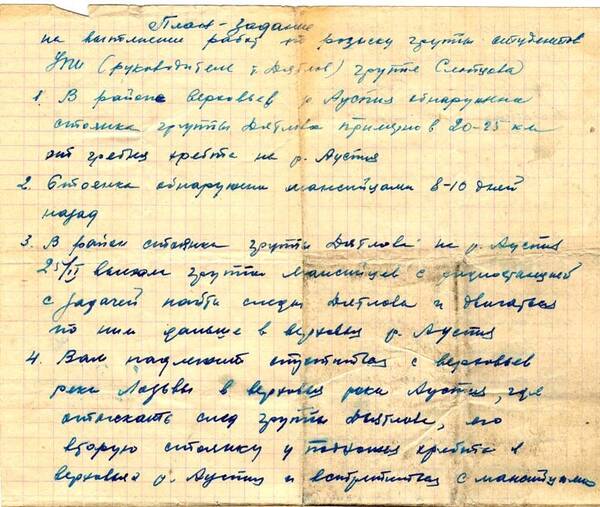 План-задание
на выполнение работ по розыску группы студентов
УПИ (руководитель т. Дятлов) группе Слепцова
1. В районе верховьев р. Ауспия обнаружена
стоянка группы Дятлова примерно в 20-25 км
от гребня хребта на р. Ауспия
2. Стоянка обнаружена мансийцами 8-10 дней
назад
3. В район стоянки группы Дятлова на р. Ауспия
25/II выехал группы Мансийцев с радиостанцией
с задачей найти следы Дятлова и двигаться
по ним дальше в верховья р. Ауспия
4. Вам надлежит спуститься с верховьев
реки Лозьвы в верховья реки Ауспия, где
отыскать след группы Дятлова, его
вторую стоянку у подножия хребта в
верховья р. Ауспия и встретиться с мансийцами